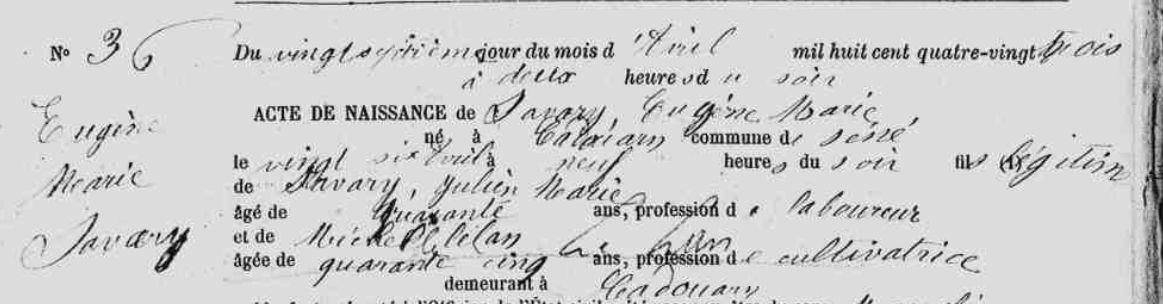 N° 36 Du vingt septième jour du mois d'Avril mil huit cent quatre-vingt trois
à deux heures du soir
Eugène Marie Savary
ACTE DE NAISSANCE de Savary, Eugène Marie,
né à Cadouarn commune de Séné
le vingt six Avril à neuf heures du soir fils (1) légitim
de Savary, Julien Marie
âgé de quarante ans, profession de laboureur
et de Michelle
âgée de quarante cinq ans, profession de cultivatrice
demeurant à Cadouarn